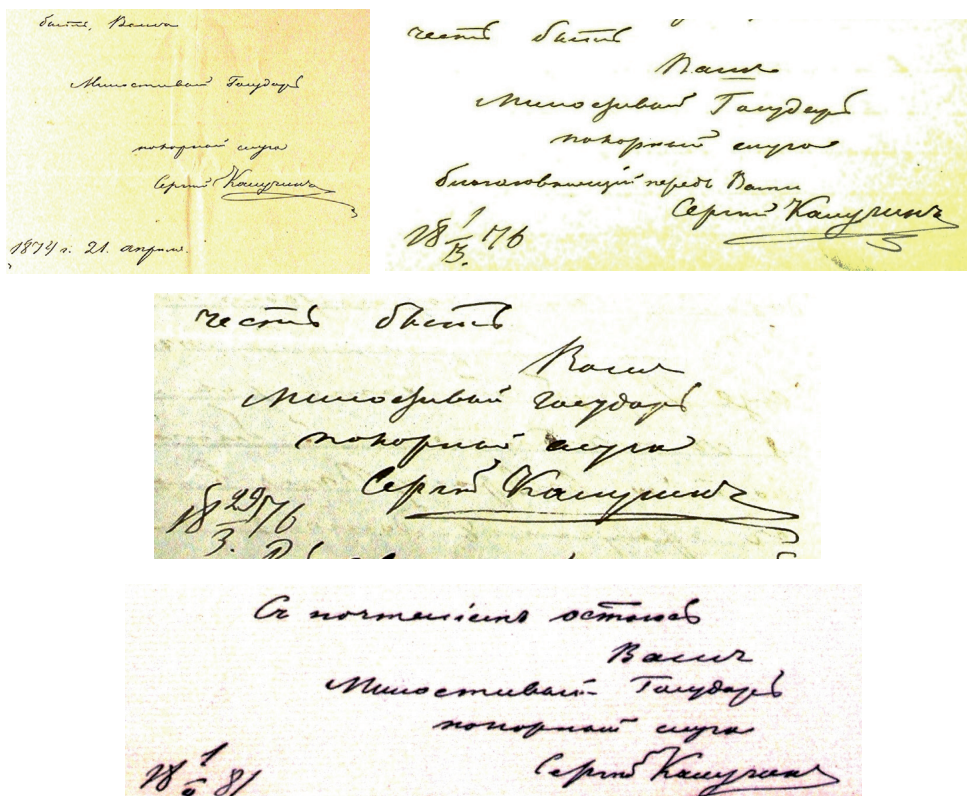 быть, Вашъ
Милостивый Государь
покорный слуга
Сергѣй
1874 г. 21. апрѣля.
честь быть
Вашъ
Милостивый Государь
покорный слуга
благоговѣющій передъ Вами
Сергѣй
18 1/3. 76
честь быть
Вашъ
Милостивый Государь
покорный слуга
Сергѣй
18 29/3. 76
Съ почтеніемъ остаюсь
Вашъ
Милостивый Государь
покорный слуга
Сергѣй
18 1 81